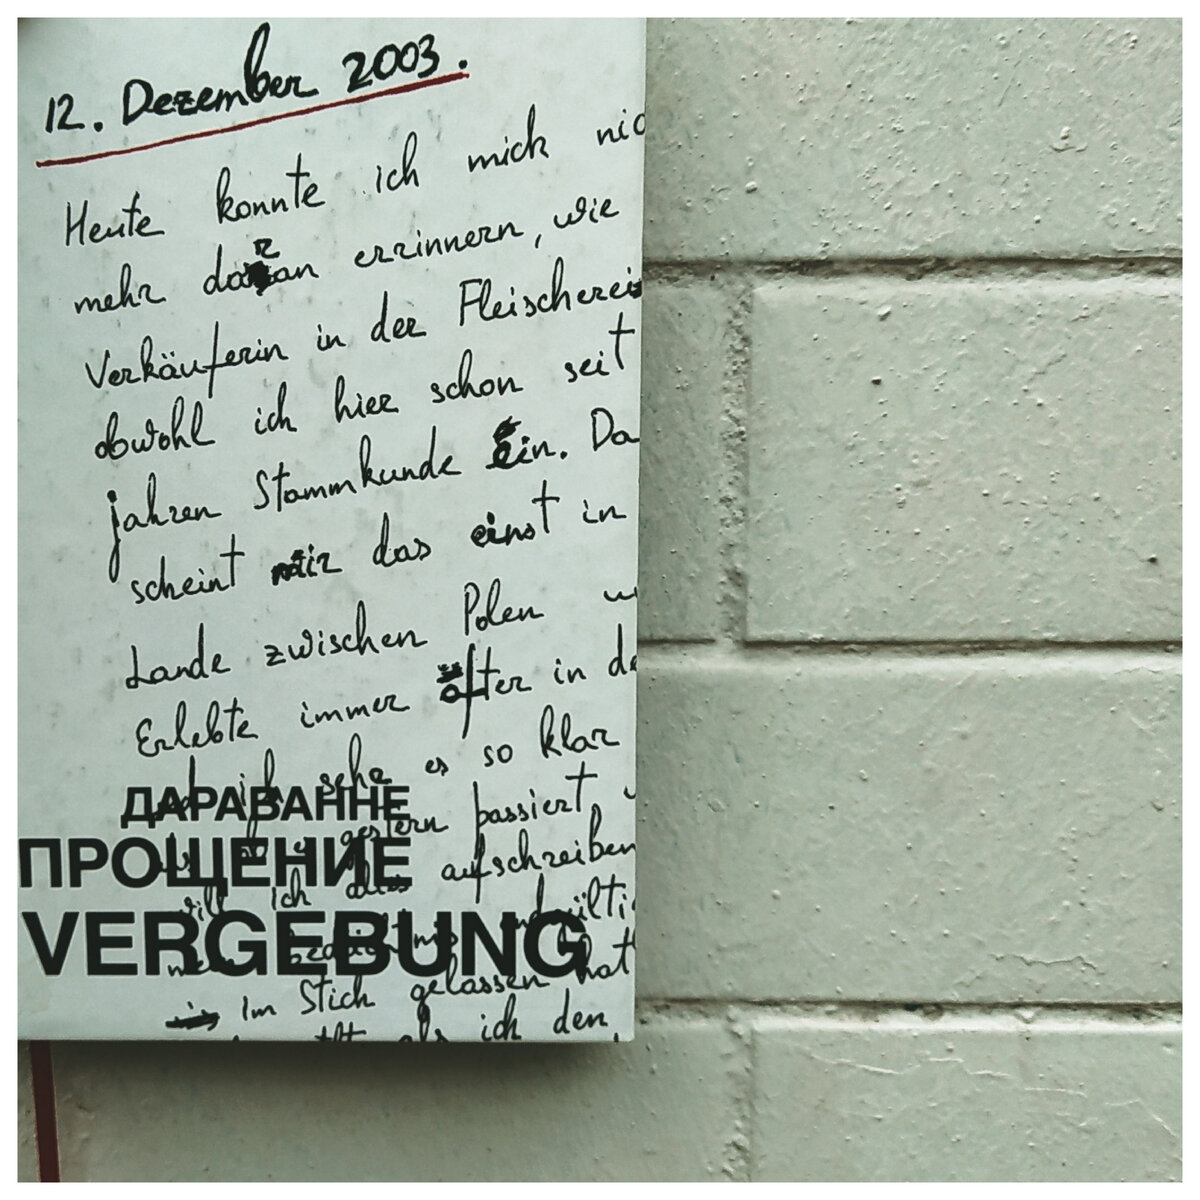 12. Dezember 2003.
Heute konnte ich mich nic
mehr daran errinnern, wie
Verkäuferin in der Fleischerei
obwohl ich hier schon seit
jahren Stammkunde ein. Da
scheint mir das einst in
Lande zwischen Polen
Erlebte immer öfter in de
ich sehe es so klar
gestern passiert,
ДАРАВАННЕ
will ich dies aufschreiben
ПРОЩЕНИЕ
VERGEBUNG
Im Stich gelassen hat
als ich den